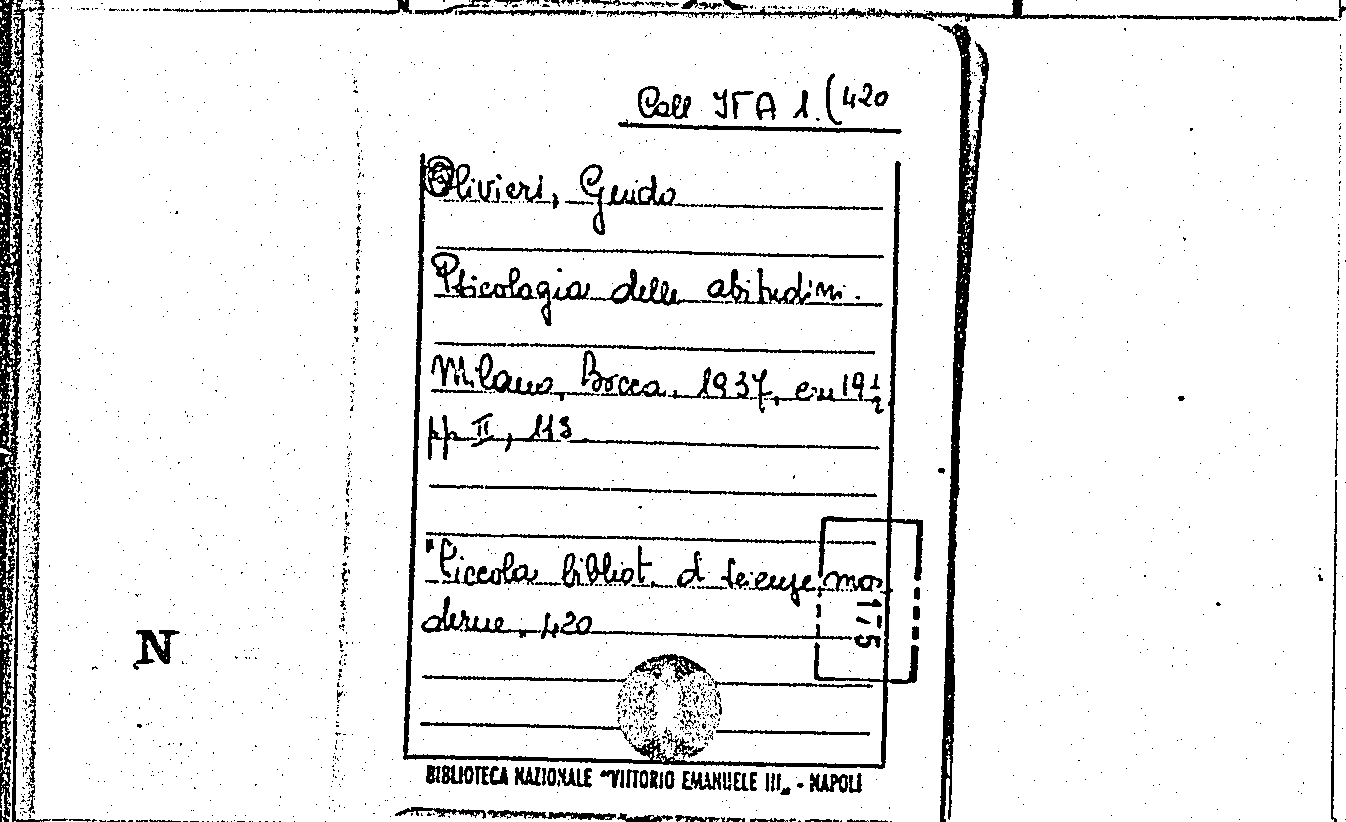 Coll ITA 1.(420
Olivieri, Guido
Psicologia delle abitudini.
Milano, Bocca, 1937, cm 19 1/2
pp II, 113
"Piccola bibliot. d scienze mo-
derne. 420
175
N
BIBLIOTECA NAZIONALE "VITTORIO EMANUELE III„ - NAPOLI